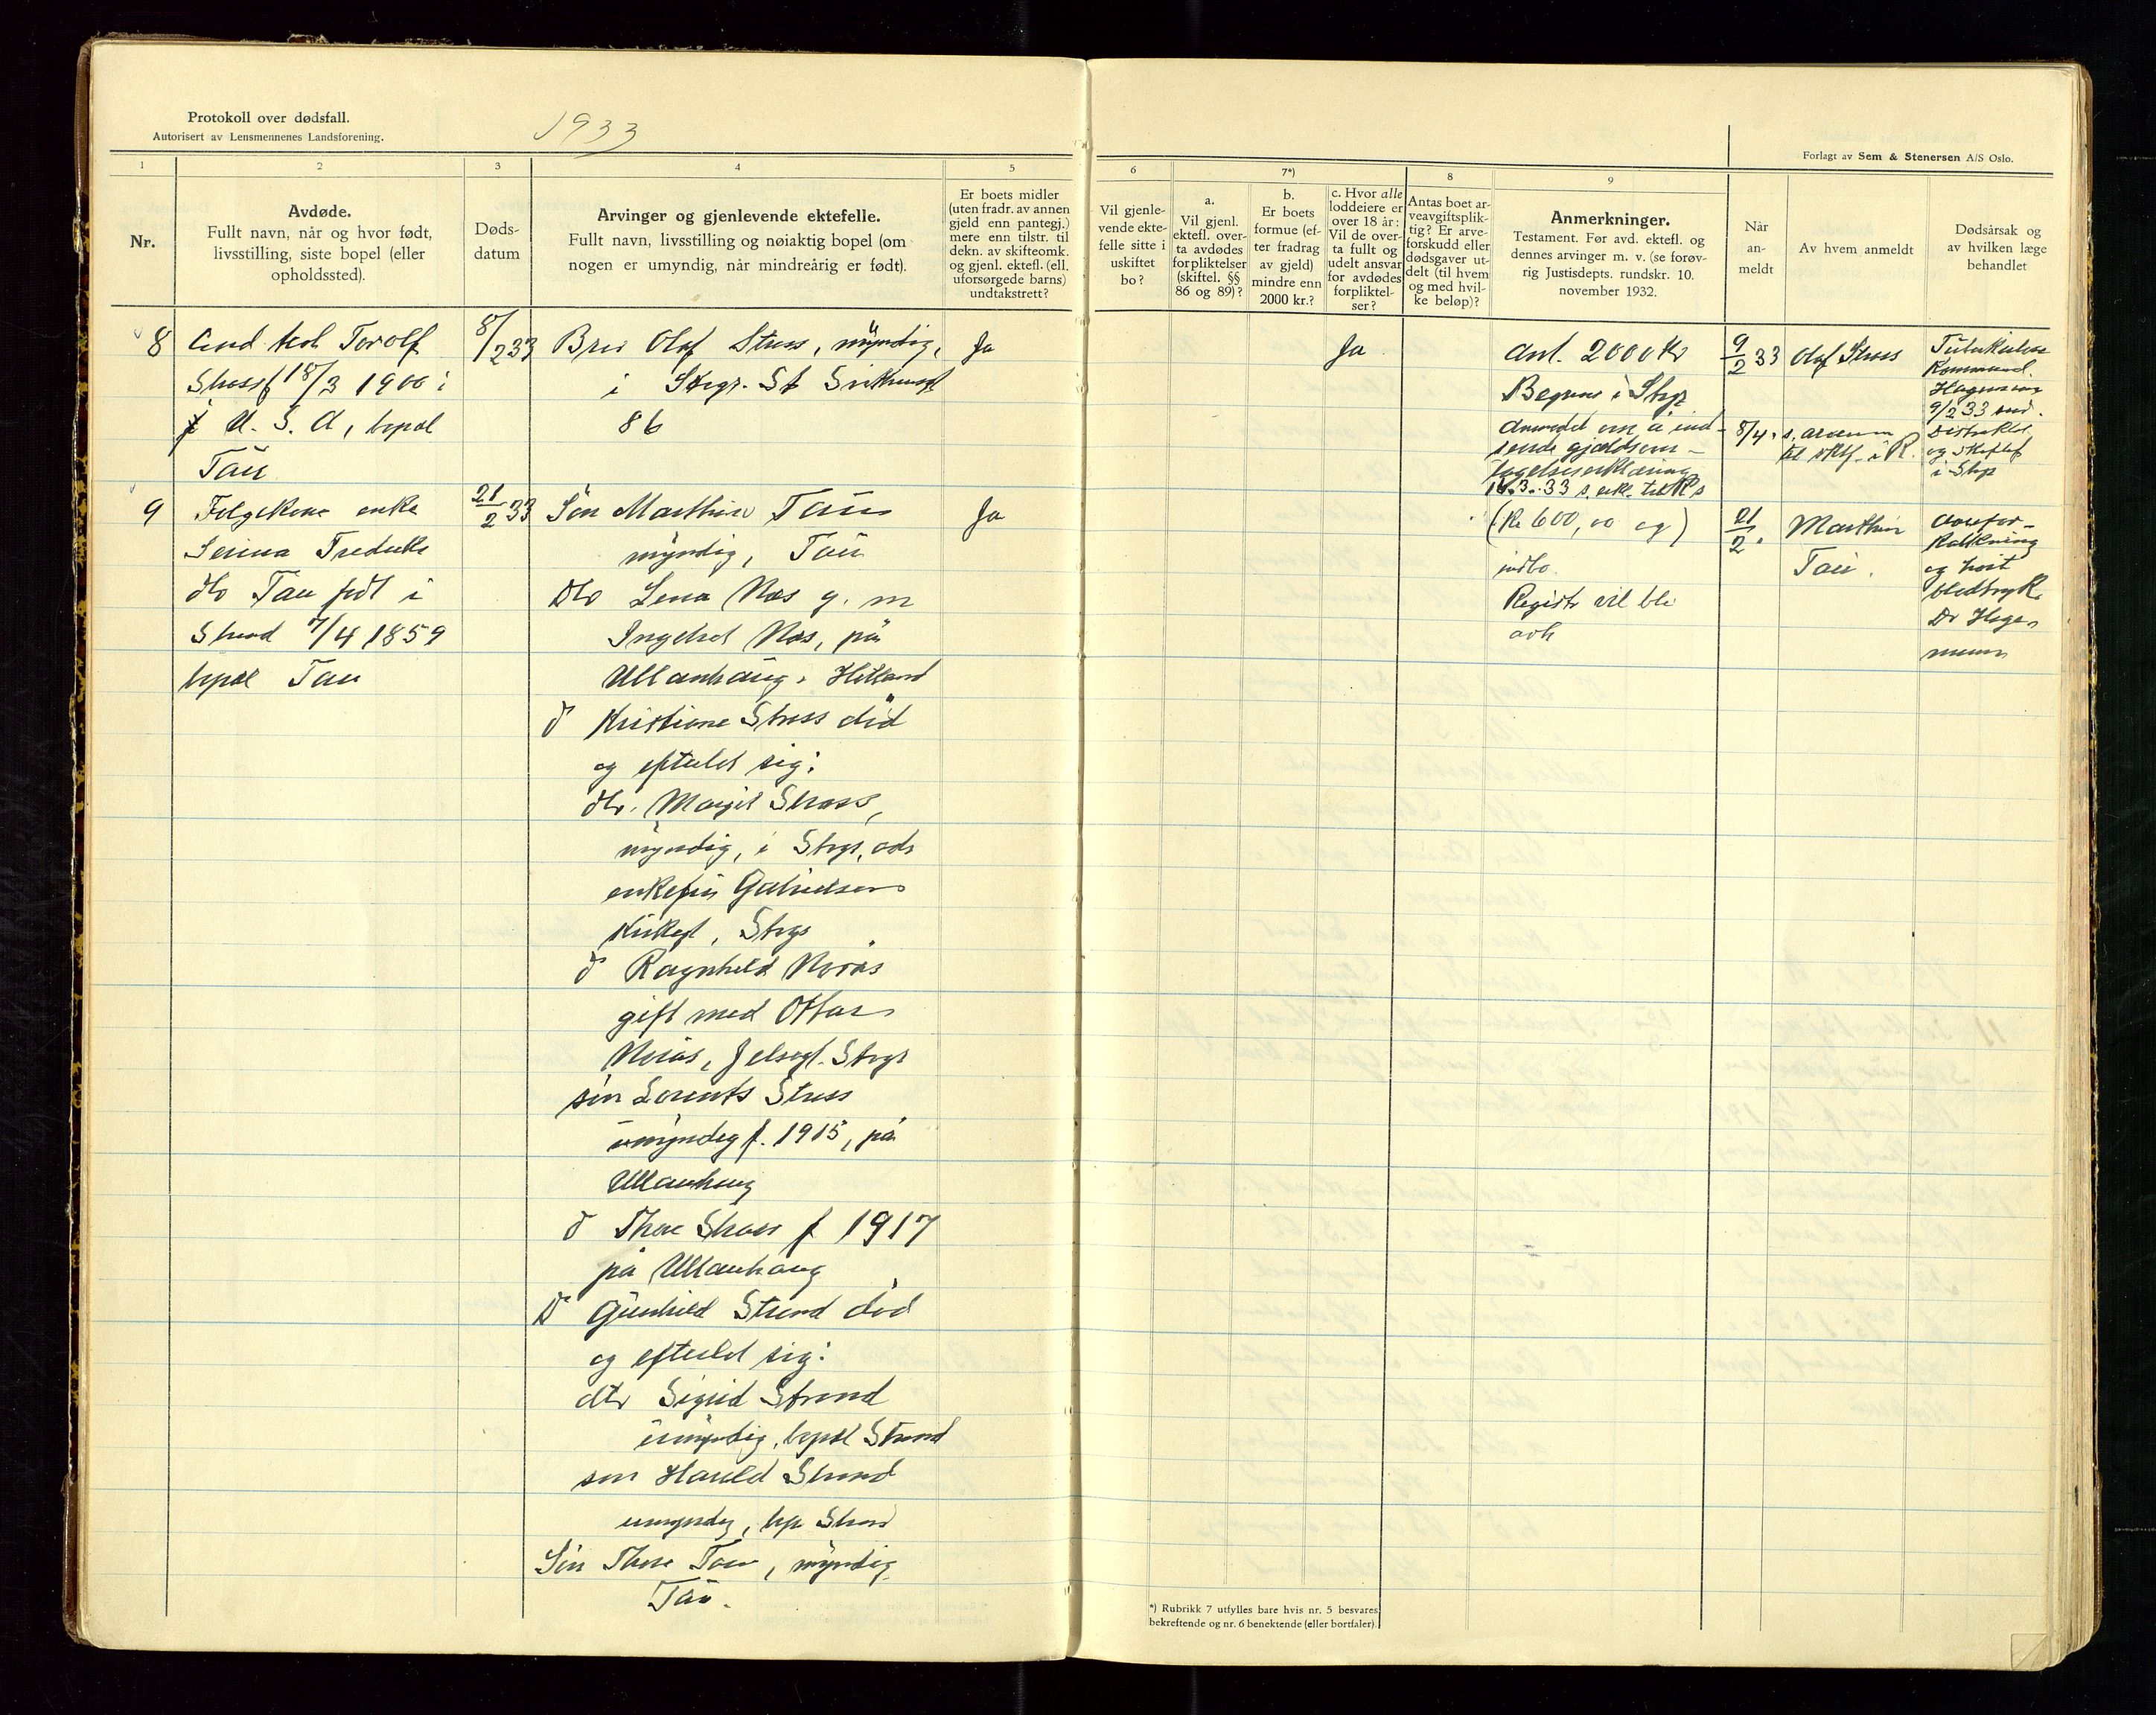 Protokoll over dødsfall.
Autorisert av Lensmennenes Landsforening.
1933
Forlagt av Sem & Stenersen A/S Oslo.
1
2
3
4
5
6
7*)
8
9
Nr.
Avdøde.
Fullt navn, når og hvor født,
livsstilling, siste bopel (eller
opholdssted).
Døds-
datum
Arvinger og gjenlevende ektefelle.
Fullt navn, livsstilling og nøiaktig bopel (om
nogen er umyndig, når mindreårig er født).
Er boets midler
(uten fradr. av annen
gjeld enn pantegj.)
mere enn tilstr. til
dekn. av skifteomk.
og gjenl. ektefl. (ell.
uforsørgede barns)
undtakstrett?
Vil gjenle-
vende ekte-
felle sitte i
uskiftet
bo?
a.
Vil gjenl.
ektefl. over-
ta avdødes
forpliktelser
(skiftel. §§
86 og 89)?
b.
Er boets
formue (ef-
ter fradrag
av gjeld)
mindre enn
2000 kr.?
c. Hvor alle
loddeiere er
over 18 år:
Vil de over-
ta fullt og
udelt ansvar
for avdødes
forpliktel-
ser?
Antas boet ar-
veavgiftsplik-
tig? Er arve-
forskudd eller
dødsgaver ut-
delt (til hvem
og med hvil-
ke beløp)?
Anmerkninger.
Testament. Før avd. ektefl. og
dennes arvinger m. v. (se forøv-
rig Justisdepts. rundskr. 10.
november 1932.
Når
an-
meldt
Av hvem anmeldt
Dødsårsak og
av hvilken læge
behandlet
8
Torolf
18/3 1900 i
U. S. A, bopæl
Tau
8/2 33
Bror Olaf Stross, myndig,
i
86
Ja
Ja
Ant. 2000 Kr
Begrav i Stvgr
Anmodet om å ind-
sende gjældsover-
tagelseserklæring
9/2 33
Olaf Stross
8/4
Tuberkulose
9/2 33
i Stvgr
9
enke
Serina Fredriks
dtr Tau født i
Strand 7/4 1859
bopæl Tau
21/2 33
Søn Marthin Tau
myndig, Tau
Dtr Lena Næs g. m
Næs, på
Ullanhaug, Hetland
d Kristiane Stross død
og efterlot sig:
dtr. Margit Stross,
myndig, i Stvgr, adr
enkefru Gabrielsen
Kirkegt, Stvgr
d Ragnhild Norås
gift med Ottar
Norås, Jelsagt. Stvgr
søn Lorents Stross
umyndig f. 1915, på
Ullanhaug
d Thora Stross f 1917
på Ullanhaug
D Gunhild Strand død
og efterlot sig:
dtr Sigrid Strand
umyndig, bopæl Strand
søn Harald Strand
umyndig, bp Strand
Søn Thore Tau, myndig
Tau.
Ja
(Kr 600,00 og)
indbo.
Registr vil bli
avh
21/2
Marthin
Tau.
Aarefor-
kalkning
og høit
blodtryk
Dr Hage-
mann
*) Rubrikk 7 utfylles bare hvis nr. 5 besvares
bekreftende og nr. 6 benektende (eller bortfaler).